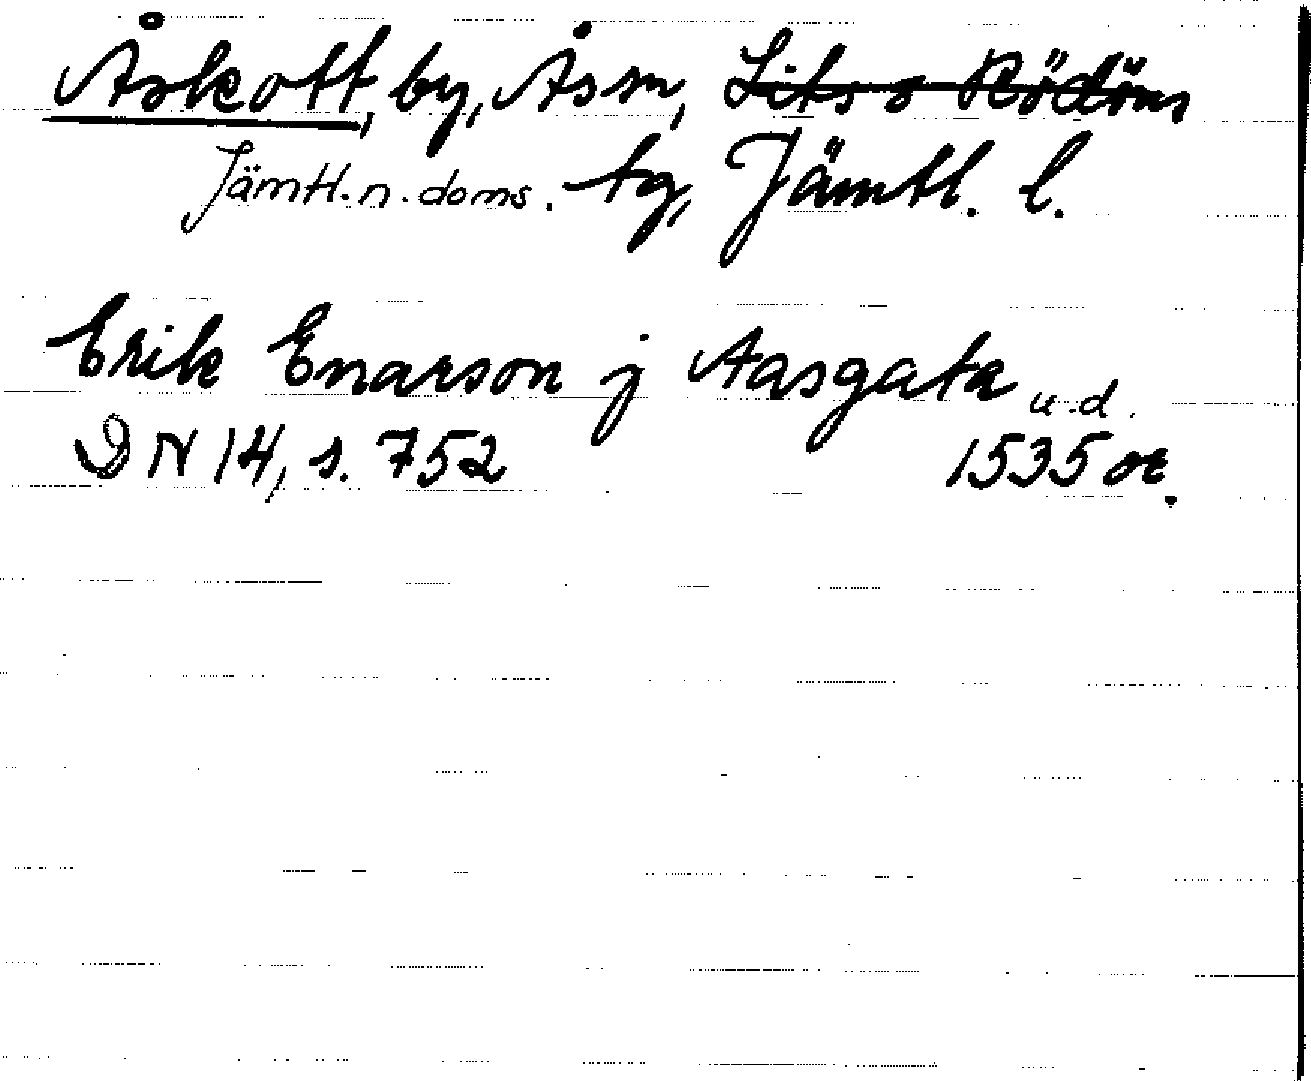 Åskott, by, Ås sn, Lits o Rödöns
Jämtl. n. doms. tg, Jämtl. l.
Erik Enarson j Aasgata u.d.
DN 14, s. 752 1535 or.